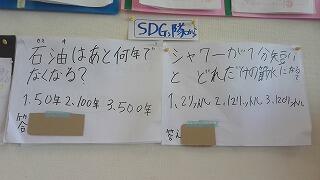 SDGs隊から
石油はあと何年で
なくなる?
1.50年2.100年3.500年
答
シャワーが1分短い
と どれだけの節水になる?
1.2リットル 2.12リットル 3.120リットル
答え